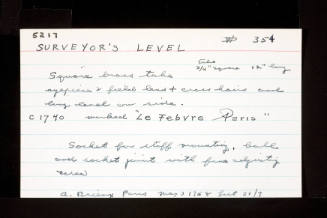 5217
SURVEYOR'S LEVEL # 354
Square brass tube 3/4" square 12" long
eyepiece & field lens & cross hairs and
long level on side.
c 1740 marked "Le Febvre Paris"
Socket for staff mounting, ball
and socket joint with fine adjusting
screw
Paris